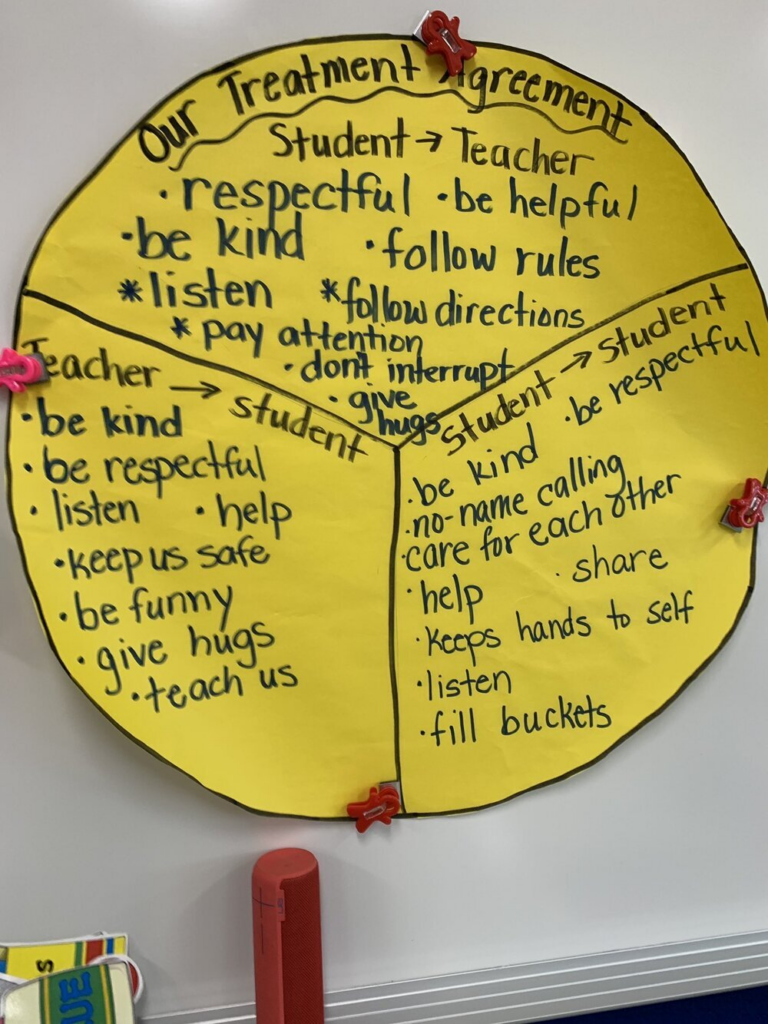 Our Treatment Agreement
Student → Teacher
· respectful · be helpful
· be kind · follow rules
* listen * follow directions
* pay attention
· dont interrupt
· give
hugs
Teacher → student
· be kind
· be respectful
· listen · help
· keep us safe
· be funny
· give hugs
· teach us
Student → student
· be kind · be respectful
· no-name calling
· care for each other
· help · share
· keeps hands to self
· listen
· fill buckets